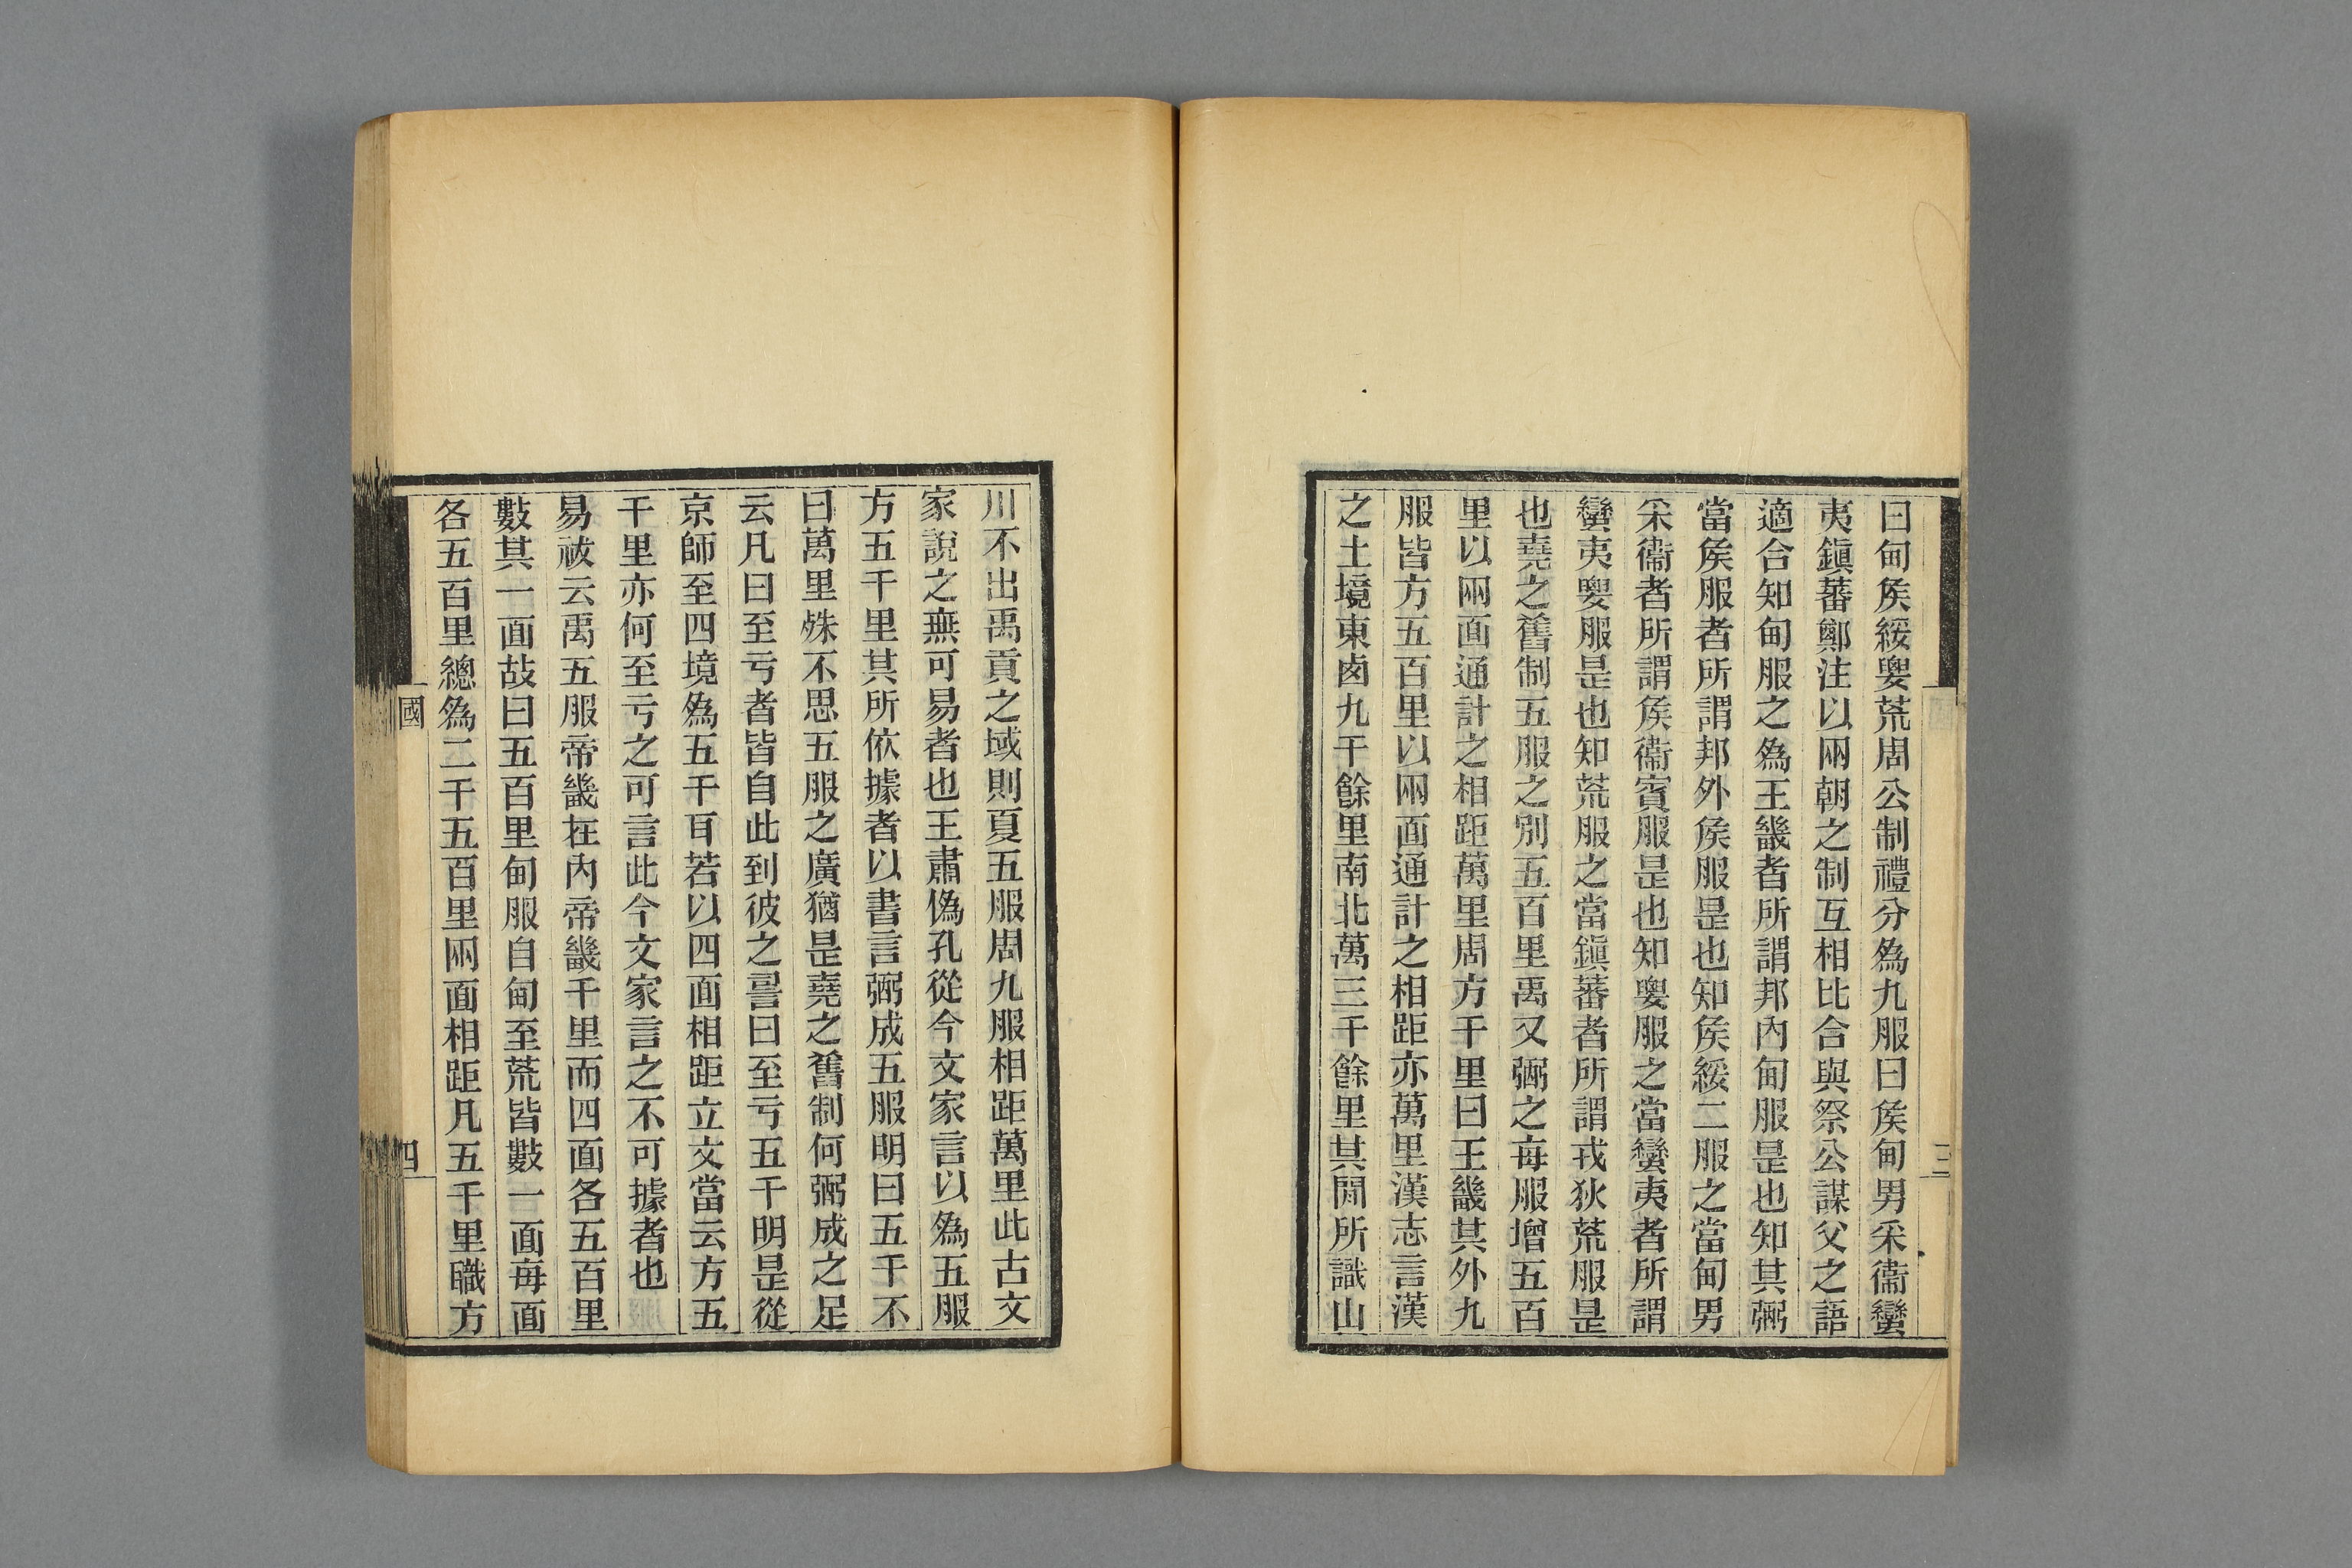 曰甸矦綏要荒周公制禮分爲九服曰矦甸男采衞蠻
夷鎭蕃鄭注以㒳朝之制互相比合與祭公謀父之語
適合知甸服之爲王畿者所謂邦內甸服是也知其弼
當矦服者所謂邦外矦服是也知矦綏二服之當甸男
采衞者所謂矦衞賓服是也知要服之當蠻夷者所謂
蠻夷要服是也知荒服之當鎭蕃者所謂戎狄荒服是
也堯之舊制五服之別五百里禹又弼之每服增五百
里以㒳面通計之相距萬里周方千里曰王畿其外九
服皆方五百里以㒳面通計之相距亦萬里漢志言漢
之土境東卤九千餘里南北萬三千餘里其閒所識山
三
川不出禹貢之域則夏五服周九服相距萬里此古文
家說之無可易者也王肅僞孔從今文家言以爲五服
方五千里其所依據者以書言弼成五服明曰五千不
曰萬里殊不思五服之廣猶是堯之舊制何弼成之足
云凡曰至亏者皆自此到彼之䛐曰至亏五千明是從
京師至四境爲五千耳若以四面相距立文當云方五
千里亦何至亏之可言此今文家言之不可據者也
易祓云禹五服帝畿在內帝畿千里而四面各五百里
數其一面故曰五百里甸服自甸至荒皆數一面每面
各五百里總爲二千五百里㒳面相距凡五千里職方
國
四